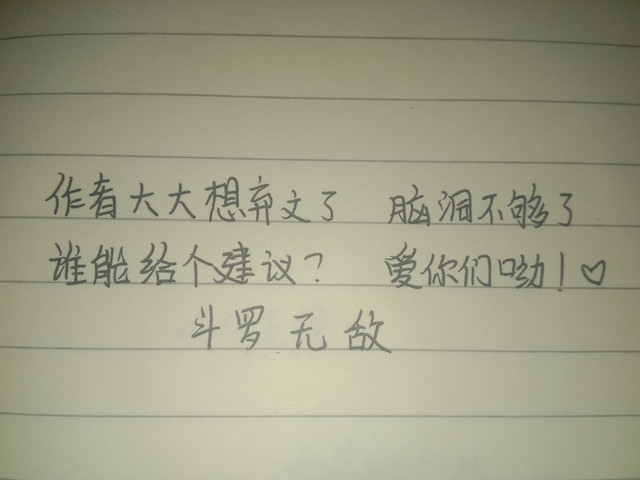 作者大大想弃文了 脑洞不够了
谁能给个建议? 爱你们呦!♡
斗罗无敌